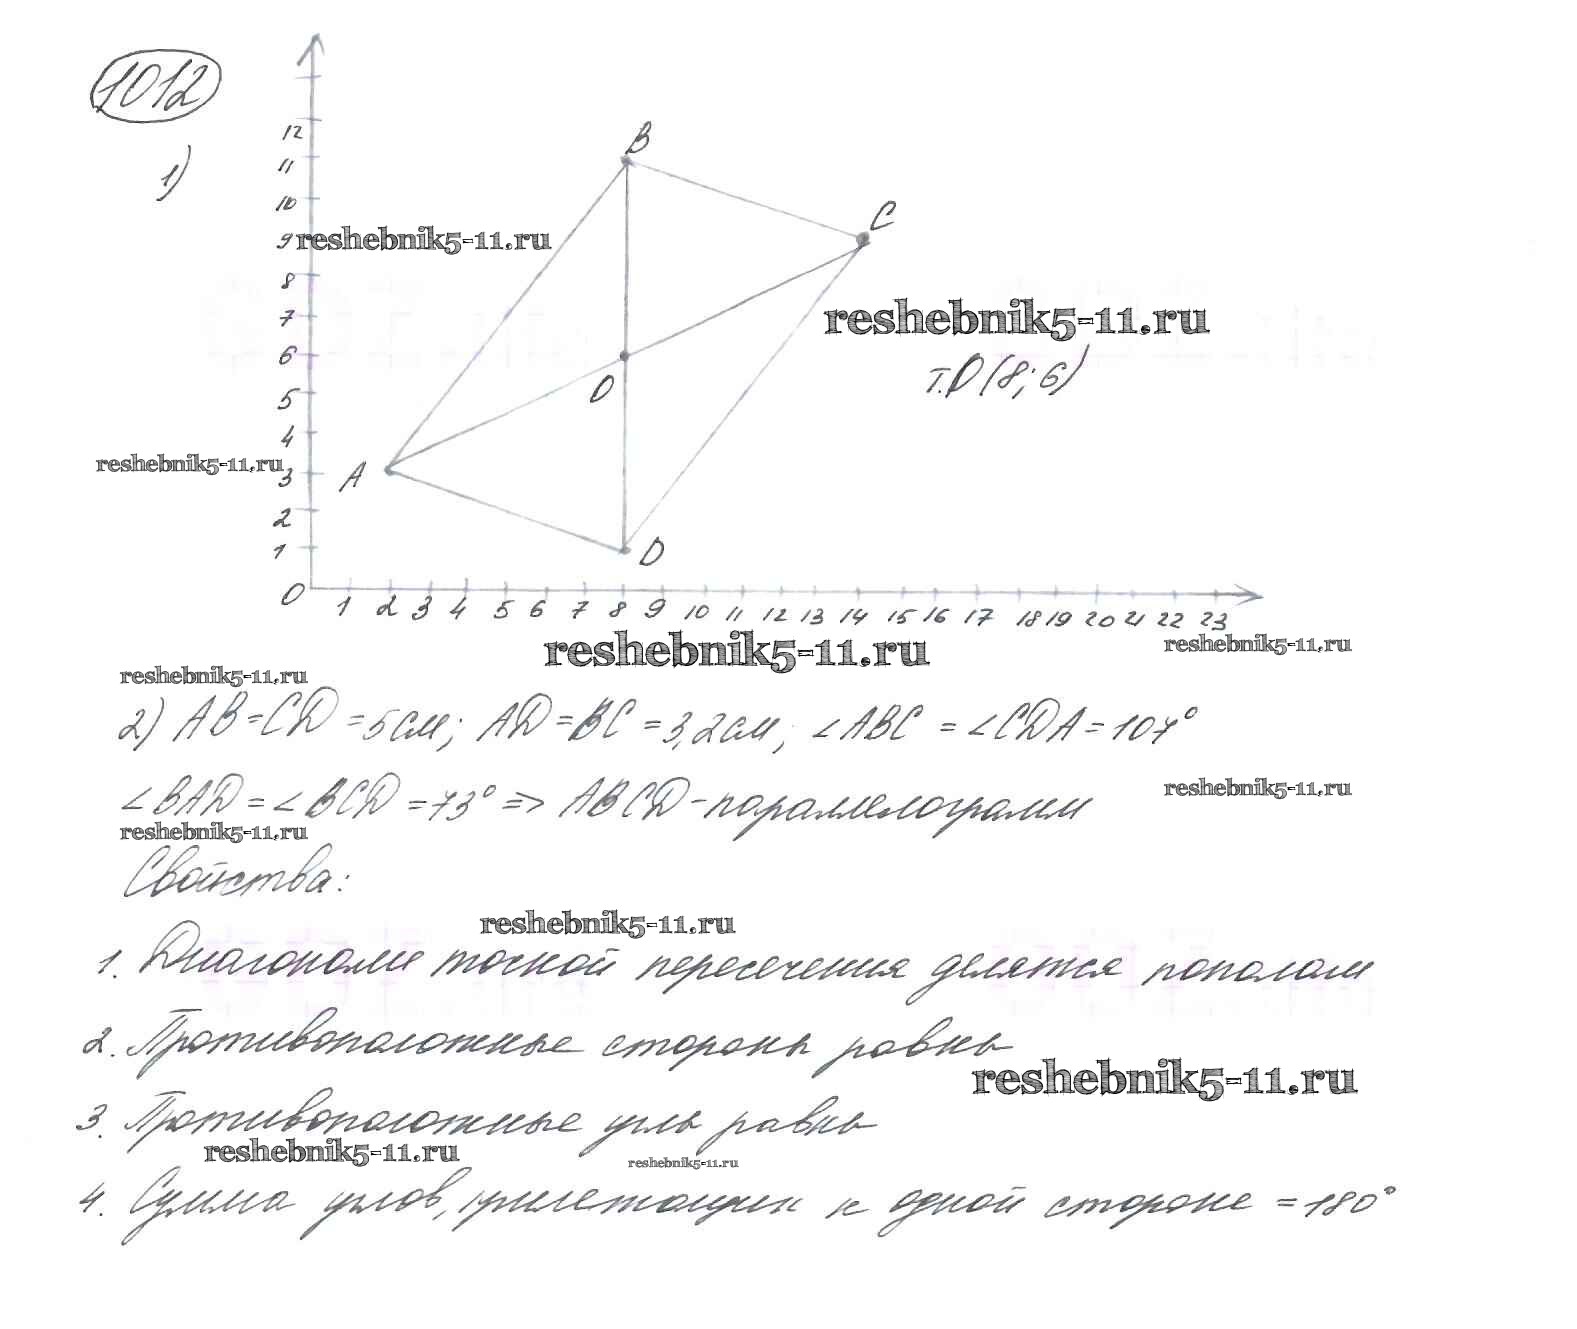 1012
1)
12
B
11
10
C
9 reshebnik5-11.ru
8
reshebnik5-11.ru
7
6
т.О (8; 6)
O
5
4
reshebnik5-11.ru
3
A
2
1
D
0
1 2 3 4 5 6 7 8 9 10 11 12 13 14 15 16 17 18 19 20 21 22 23
reshebnik5-11.ru
reshebnik5-11.ru
reshebnik5-11.ru
2) AB = CD = 5см; AD = BC = 3,2см; ∠ABC = ∠CDA = 107°
∠BAD = ∠BCD = 73° => ABCD - параллелограмм
reshebnik5-11.ru
reshebnik5-11.ru
Свойства:
reshebnik5-11.ru
1. Диагонали точкой пересечения делятся пополам
2. Противоположные стороны равны
reshebnik5-11.ru
3. Противоположные углы равны
reshebnik5-11.ru
reshebnik5-11.ru
4. Сумма углов, прилежащих к одной стороне = 180°